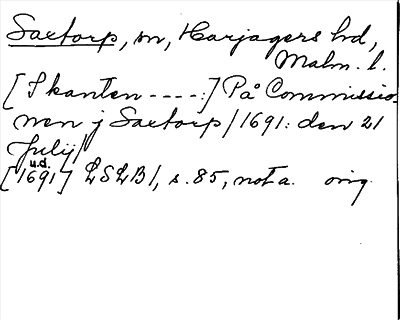 Saxtorp, sn, Harjagers hd,
Malm. l.
[I kanten ----:] På Commissio-
nen j Saxtorp /1691: den 21
Julij/
u.d.
[1691] LSLB1, s. 85, nota. orig.